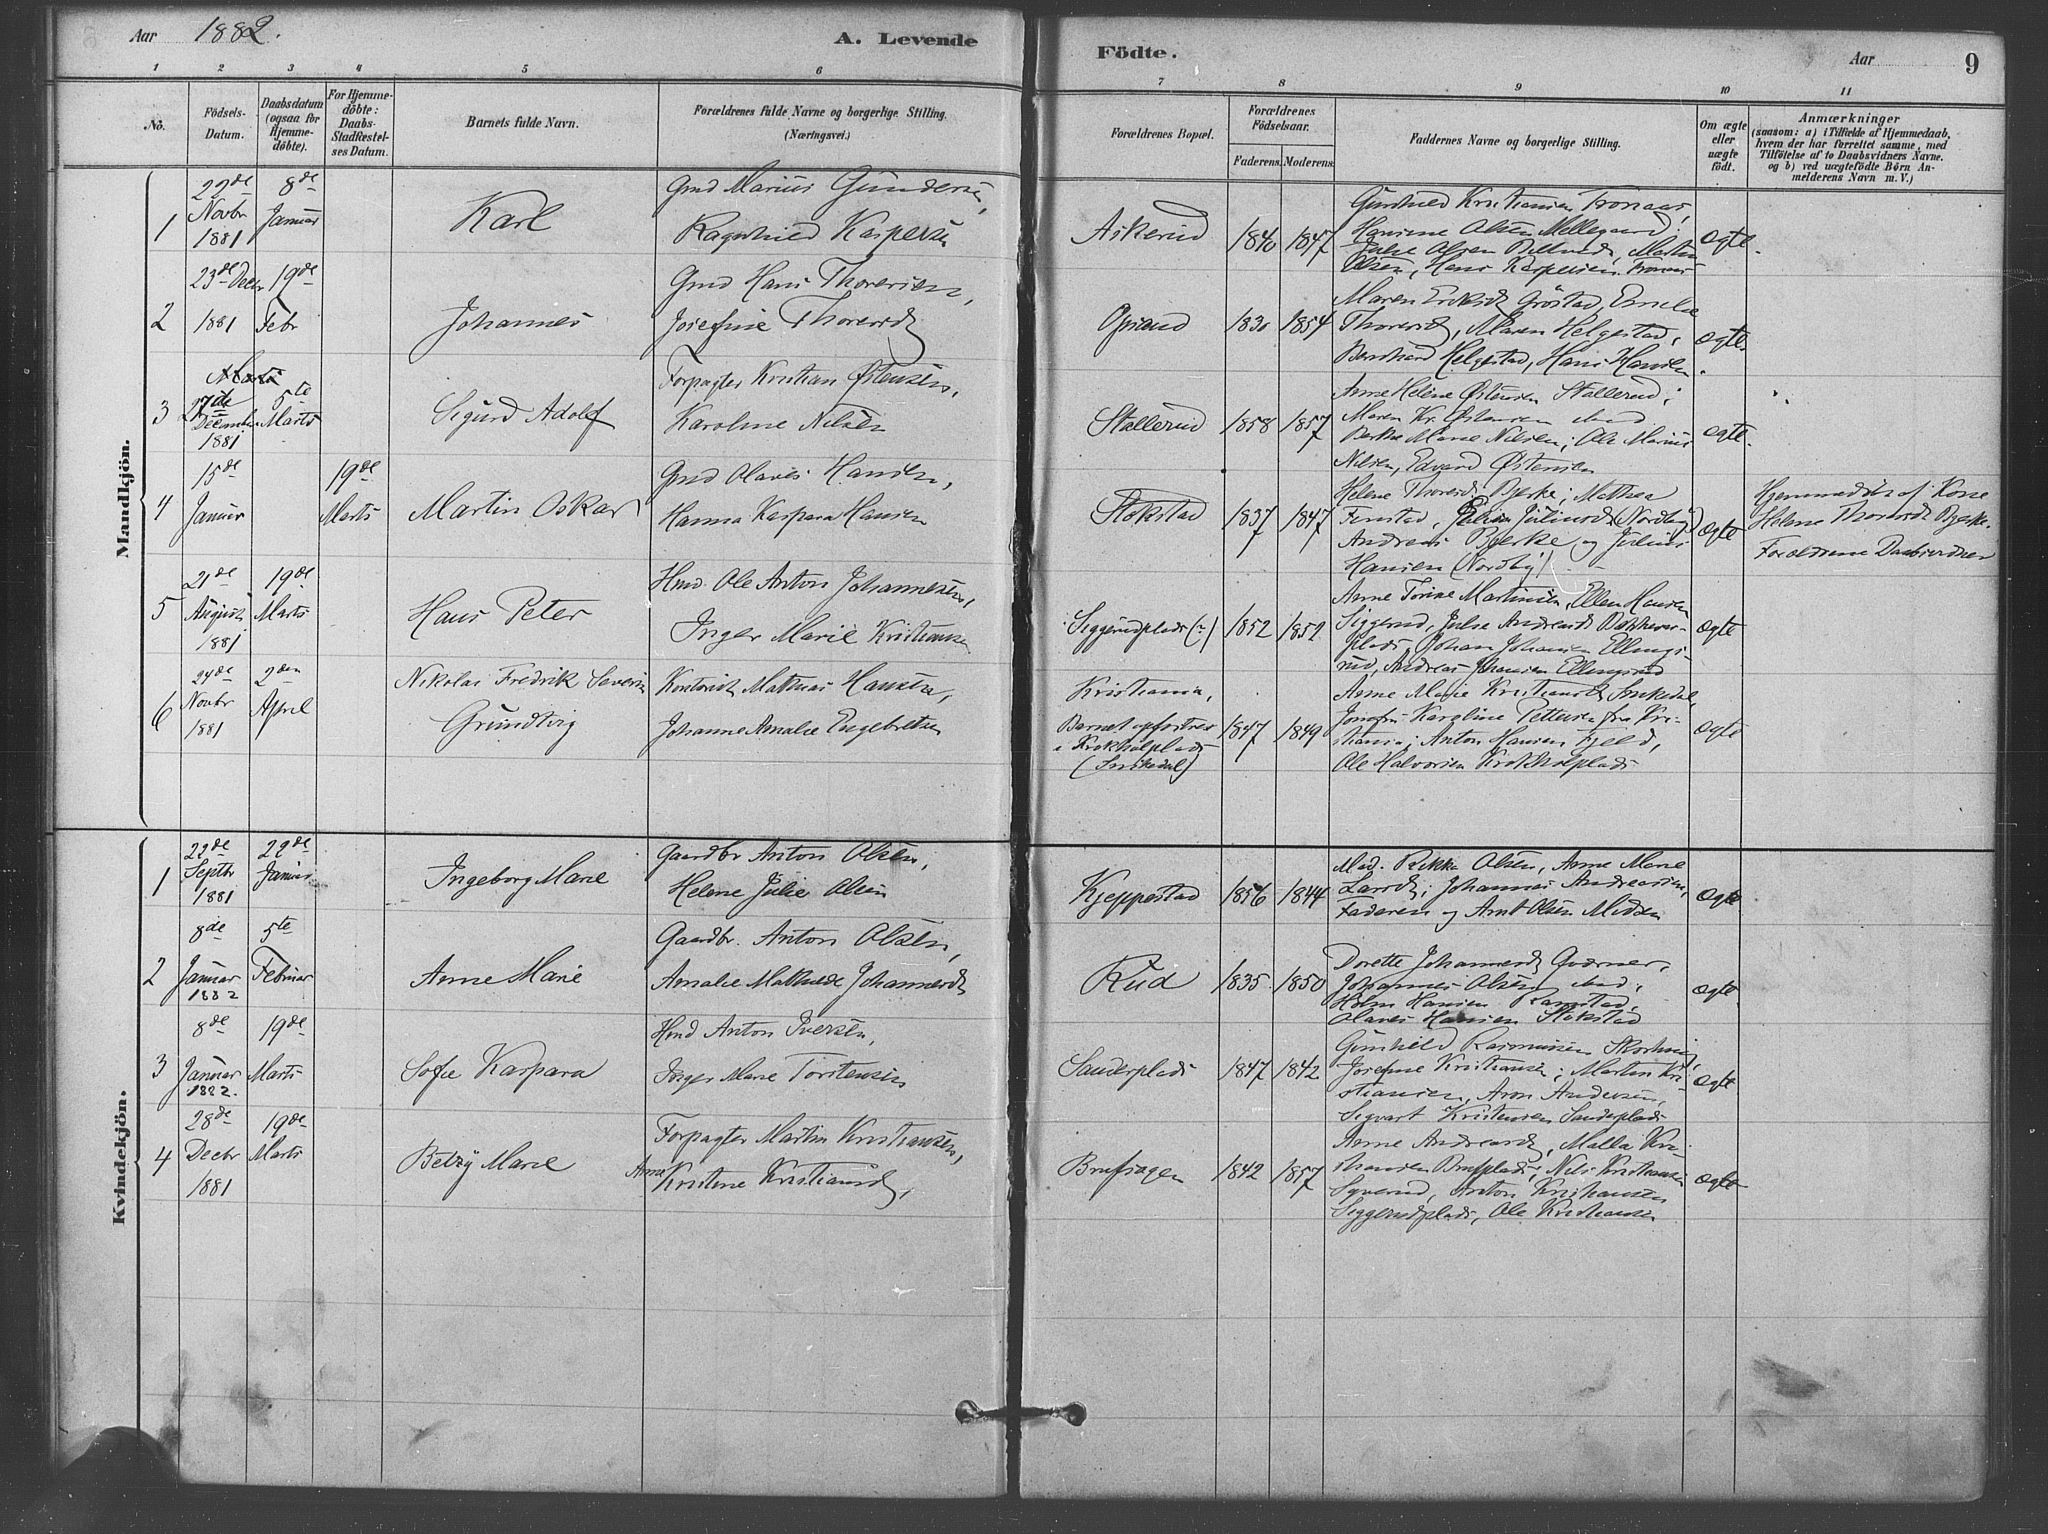 Aar 1882. A. Levende Födte. Aar 9
1 2 3 4 5 6 7 8 9 10 11
No.
Födsels-Datum.
Daabsdatum (ogsaa for Hjemmedöbte).
For Hjemmedöbte: Daabs-Stadfæstelses Datum.
Barnets fulde Navn.
Forældrenes fulde Navne og borgerlige Stilling. (Næringsvei.)
Forældrenes Bopæl.
Forældrenes Födselsaar.
Faderens. Moderens.
Faddernes Navne og borgerlige Stilling.
Om ægte eller uægte födt.
Anmærkninger
(saasom: a) i Tilfælde af Hjemmedaab,
hvem der har forrettet samme, med
Tilföielse af to Daabsvidners Navne.
og b) ved uægtefödte Börn An-
melderens Navn m. V.)
Mandkjön.
1 22de Novbr 1881 8de Januar
Karl
Gmd Marius Gundersen,
Ragnhild Kaspersen
Askerud 1840 1847
Gunhild Kristiansen Tronaas,
Hansine Olsen Mellegaard,
Julie Olsen, Martin
Olsen, Hans Kaspersen Tronaas
Ægte.
2 23de Decbr 1881 19de Febr
Johannes
Gmd Hans Thoresen,
Josefine Thoresdt
Opsand 1830 1854
Maren Grøstad, Emilie
Thoresdt, Maren Helgestad,
Bernhard Helgestad, Hans Hansen
Ægte.
3 27de December 1881 5te Marts
Sigurd Adolf
Forpagter Kristian Østensen,
Karoline Nilsen
Stallerud 1858 1857
Anne Helene Østensen Stallerud;
Maren Kr. Østensen ibid
Berthe Marie Nilsen; Ole Marius
Nilsen, Edvard Østensen
Ægte.
4 15de Januar 19de Marts
Martin Oskar
Gmd Olaves Hansen,
Hanna Kaspara Hansen
Stokstad 1837 1847
Helene Thoresdt Bjerke; Mathea
Fenstad, Juliusdt (Nordby)
Andreas Bjerke og Julius
Hansen (Nordby)
Ægte
Hjemmedöbt af Kone
Helene Thoresdt Bjerke.
Forældrene Daabsvidner
5 21de August 1881 19de Marts
Hans Peter
Hmd. Ole Anton Johannesen,
Inger Marie Kristiansen
Siggerudplads (?) 1852 1852
Anne Torine Martinsen, Ellen Hansen
Siggerud, Julie Andreasdt
plads, Johan Johansen Ellings-
rud, Andreas Johansen Ellingsrud
Ægte
6 24de Novbr 1881 2den April
Nikolai Fredrik Severin
Grundtvig
Kontorist Mathias Hansen,
Johanne Amalie Engebretsen
Kristiania,
Barnet opfostres
i Krokholplads
(Sørkedal)
1847 1849
Anne Marie Kristiansdt
Karoline Pettersen fra Kri-
stiania; Anton Hansen Fjeld,
Ole Halvorsen Krokholplads
Ægte
Kvindekjön.
1 22de Septbr 1881 29de Januar
Ingeborg Marie
Gaardbr Anton Olsen,
Helene Julie Olsen
Kjeppestad 1856 1844
Mad. Rikka Olsen, Anne Marie
Larsdt; Johannes Andreassen,
Faderen og Arnt Olsen Midsen
Ægte
2 8de Januar 1882 5te Februar
Anne Marie
Gaardbr. Anton Olsen,
Amalie Mathilde Johannesdt
Rud 1835 1850
Dorette Johannesdt Qværner,
Johannes Olsen ibid,
Holm Hansen Ramstad,
Olaves Hansen Stokstad
Ægte
3 8de Januar 1882. 19de Marts
Sofie Kaspara
Hmd Anton Iversen,
Inger Marie Torstensen
Sanderplads 1847 1842
Gunhild Rasmussen
Josefine Kristiansen; Martin Kri-
stiansen, Aron Andersen,
Sigvart Kristensen Sanderplads
Ægte
4 28de Decbr 1881 19de Marts
Betzy Marie
Forpagter Martin Kristiansen,
Anne Kristine Kristiansdt,
Brufsagen 1842 1857
Anne Andreasdt, Malla Kri-
stiansen Brufplads; Nils Kristiansen
Syverud, Anton Kristiansen
Siggerudplads, Ole Kristiansen
Ægte